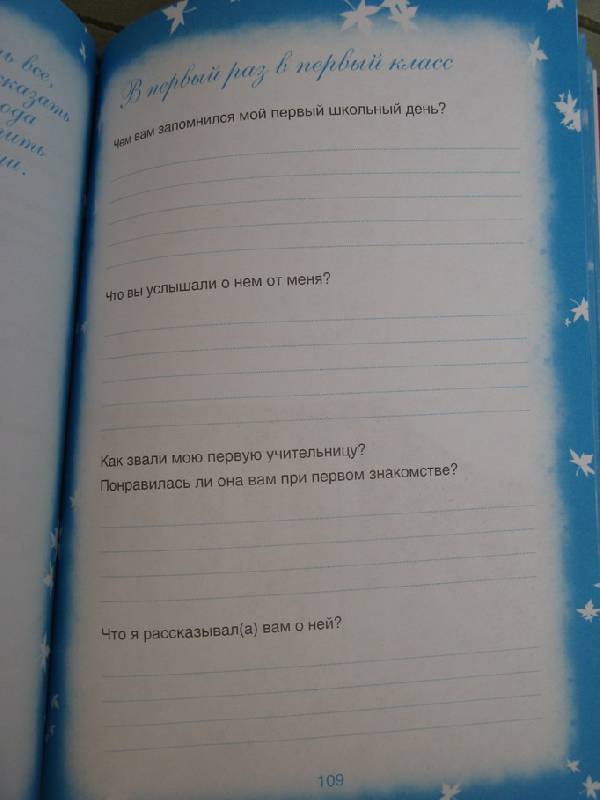 все,
сказать
ода
ить
В первый раз в первый класс
Чем вам запомнился мой первый школьный день?
Что вы услышали о нем от меня?
Как звали мою первую учительницу?
Понравилась ли она вам при первом знакомстве?
Что я рассказывал(а) вам о ней?
109